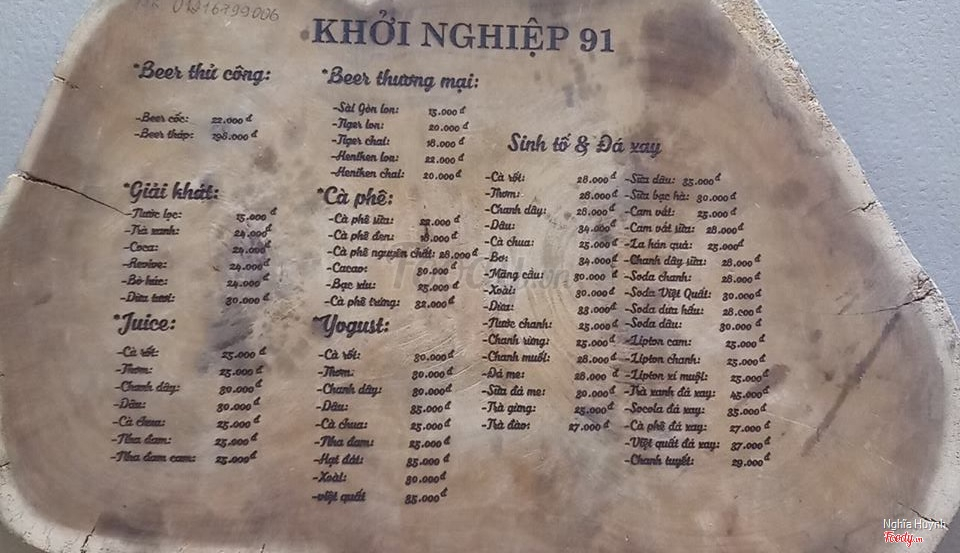 01216799006
KHỞI NGHIỆP 91
*Beer thủ công:
-Beer cốc: 22.000đ
-Beer tháp: 198.000đ
*Beer thương mại:
-Sài Gòn lon: 15.000đ
-Tiger lon: 20.000đ
-Tiger chai: 18.000đ
-Heniken lon: 22.000đ
-Heniken chai: 20.000đ
*Giải khát:
-Nước lọc: 15.000đ
-Trà xanh: 24.000đ
-Coca: 24.000đ
-Revive: 24.000đ
-Bò húc: 24.000đ
-Dừa tươi: 30.000đ
*Cà phê:
-Cà phê sữa: 22.000đ
-Cà phê đen: 18.000đ
-Cà phê nguyên chất: 28.000đ
-Cacao: 30.000đ
-Bạc xỉu: 25.000đ
-Cà phê trứng: 32.000đ
*Juice:
-Cà rốt: 25.000đ
-Thơm: 25.000đ
-Chanh dây: 30.000đ
-Dâu: 30.000đ
-Cà chua: 25.000đ
-Nha đam: 25.000đ
-Nha đam cam: 25.000đ
*Yogust:
-Cà rốt: 30.000đ
-Thơm: 30.000đ
-Chanh dây: 30.000đ
-Dâu: 35.000đ
-Cà chua: 25.000đ
-Nha đam: 25.000đ
-Hạt dát: 35.000đ
-Xoài: 30.000đ
-việt quất 35.000đ
Sinh tố & Đá xay
-Cà rốt: 28.000đ
-Thơm: 28.000đ
-Chanh dây: 28.000đ
-Dâu: 34.000đ
-Cà chua: 25.000đ
-Bơ: 34.000đ
-Mãng cầu: 30.000đ
-Xoài: 30.000đ
-Dừa: 33.000đ
-Nước chanh: 25.000đ
-Chanh rừng: 25.000đ
-Chanh muối: 28.000đ
-Đá me: 28.000đ
-Sữa đá me: 30.000đ
-Trà gừng: 25.000đ
-Trà đào: 27.000đ
-Sữa dâu: 35.000đ
-Sữa bạc hà: 30.000đ
-Cam vắt: 25.000đ
-Cam vắt sữa: 28.000đ
-La hán quả: 25.000đ
-Chanh dây sữa: 28.000đ
-Soda chanh: 28.000đ
-Soda Việt Quất: 30.000đ
-Soda dưa hấu: 28.000đ
-Soda dâu: 30.000đ
-Lipton cam: 25.000đ
-Lipton chanh: 25.000đ
-Lipton xí muội: 25.000đ
-Trà xanh đá xay: 45.000đ
-Socola đá xay: 35.000đ
-Cà phê đá xay: 27.000đ
-Việt quất đá xay: 37.000đ
-Chanh tuyết: 29.000đ
Nghĩa Huỳnh
Foody.vn